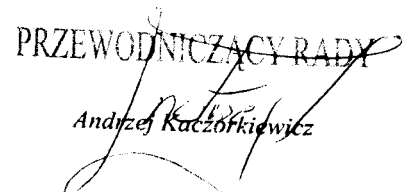 PRZEWODNICZĄCY RADY
Andrzej Kaczorkiewicz